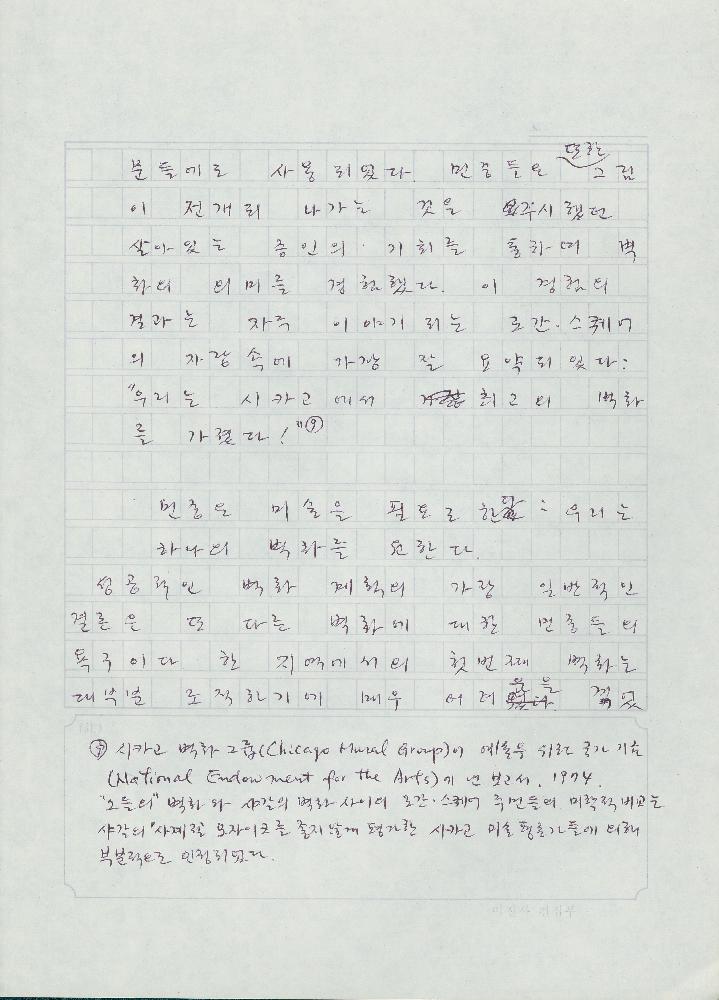 분들에도 사용되었다. 민중들은 또한 그림
이 전개되 나가는 것을 주시했던
살아있는 증인의 기회를 통하여 벽
화의 의미를 경험했다. 이 경험의
결과는 자주 이야기되는 로간·스퀘어
의 자랑 속에 가장 잘 요약되있다:
"우리는 시카고에서 최고의 벽화
를 가졌다! "⑨
민중은 미술을 필요로 한다 : 우리는
하나의 벽화를 원한다.
성공적인 벽화 계획의 가장 일반적인
결론은 또 다른 벽화에 대한 민중들의
욕구이다 한 지역에서의 첫번째 벽화는
대부분 조직하기에 매우 어려운
⑨ 시카고 벽화그룹(Chicago Mural Group)이 예술을 위한 국가기금
(National Endowment for the Arts)에 낸 보고서, 1974.
벽화와 샤갈의 벽화 사이의 로간·스퀘어 주민들의 미학적 비교는
샤갈의 "사계절 모자이크를 좋지 않게 평가한 시카고 미술평론가들에 의해
부분적으로 인정되었다.